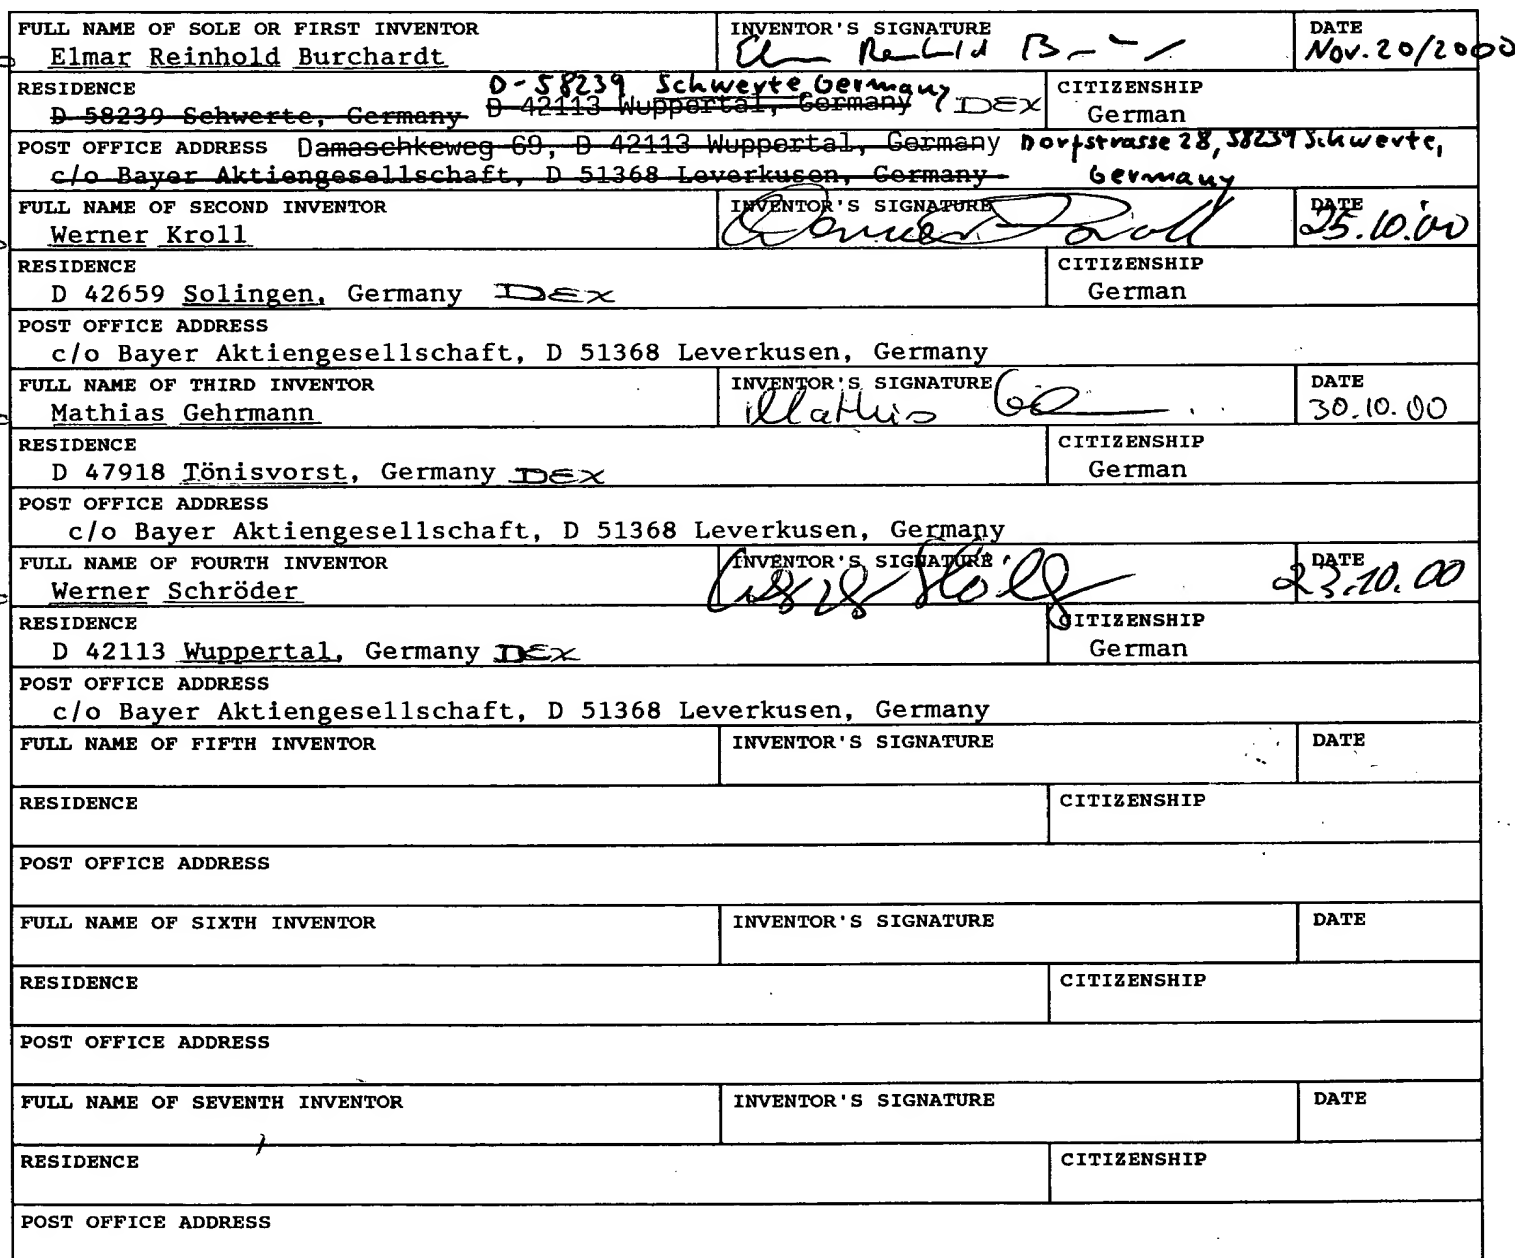 FULL NAME OF SOLE OR FIRST INVENTOR INVENTOR'S SIGNATURE DATE
Elmar Reinhold Burchardt Nov. 20/2000
RESIDENCE D-58239 Schwerte Germany CITIZENSHIP
D 58239 Schwerte, Germany D 42113 Wuppertal, Germany DEX German
POST OFFICE ADDRESS Damaschkeweg 69, D 42113 Wuppertal, Germany Dorfstrasse 28, 58239 Schwerte,
c/o Bayer Aktiengesellschaft, D 51368 Leverkusen, Germany Germany
FULL NAME OF SECOND INVENTOR INVENTOR'S SIGNATURE DATE
Werner Kroll Werner Kroll 25.10.00
RESIDENCE CITIZENSHIP
D 42659 Solingen, Germany DEX German
POST OFFICE ADDRESS
c/o Bayer Aktiengesellschaft, D 51368 Leverkusen, Germany
FULL NAME OF THIRD INVENTOR INVENTOR'S SIGNATURE DATE
Mathias Gehrmann Mathias 30.10.00
RESIDENCE CITIZENSHIP
D 47918 Tönisvorst, Germany DEX German
POST OFFICE ADDRESS
c/o Bayer Aktiengesellschaft, D 51368 Leverkusen, Germany
FULL NAME OF FOURTH INVENTOR INVENTOR'S SIGNATURE DATE
Werner Schröder 23.10.00
RESIDENCE CITIZENSHIP
D 42113 Wuppertal, Germany DEX German
POST OFFICE ADDRESS
c/o Bayer Aktiengesellschaft, D 51368 Leverkusen, Germany
FULL NAME OF FIFTH INVENTOR INVENTOR'S SIGNATURE DATE
RESIDENCE CITIZENSHIP
POST OFFICE ADDRESS
FULL NAME OF SIXTH INVENTOR INVENTOR'S SIGNATURE DATE
RESIDENCE CITIZENSHIP
POST OFFICE ADDRESS
FULL NAME OF SEVENTH INVENTOR INVENTOR'S SIGNATURE DATE
RESIDENCE CITIZENSHIP
POST OFFICE ADDRESS